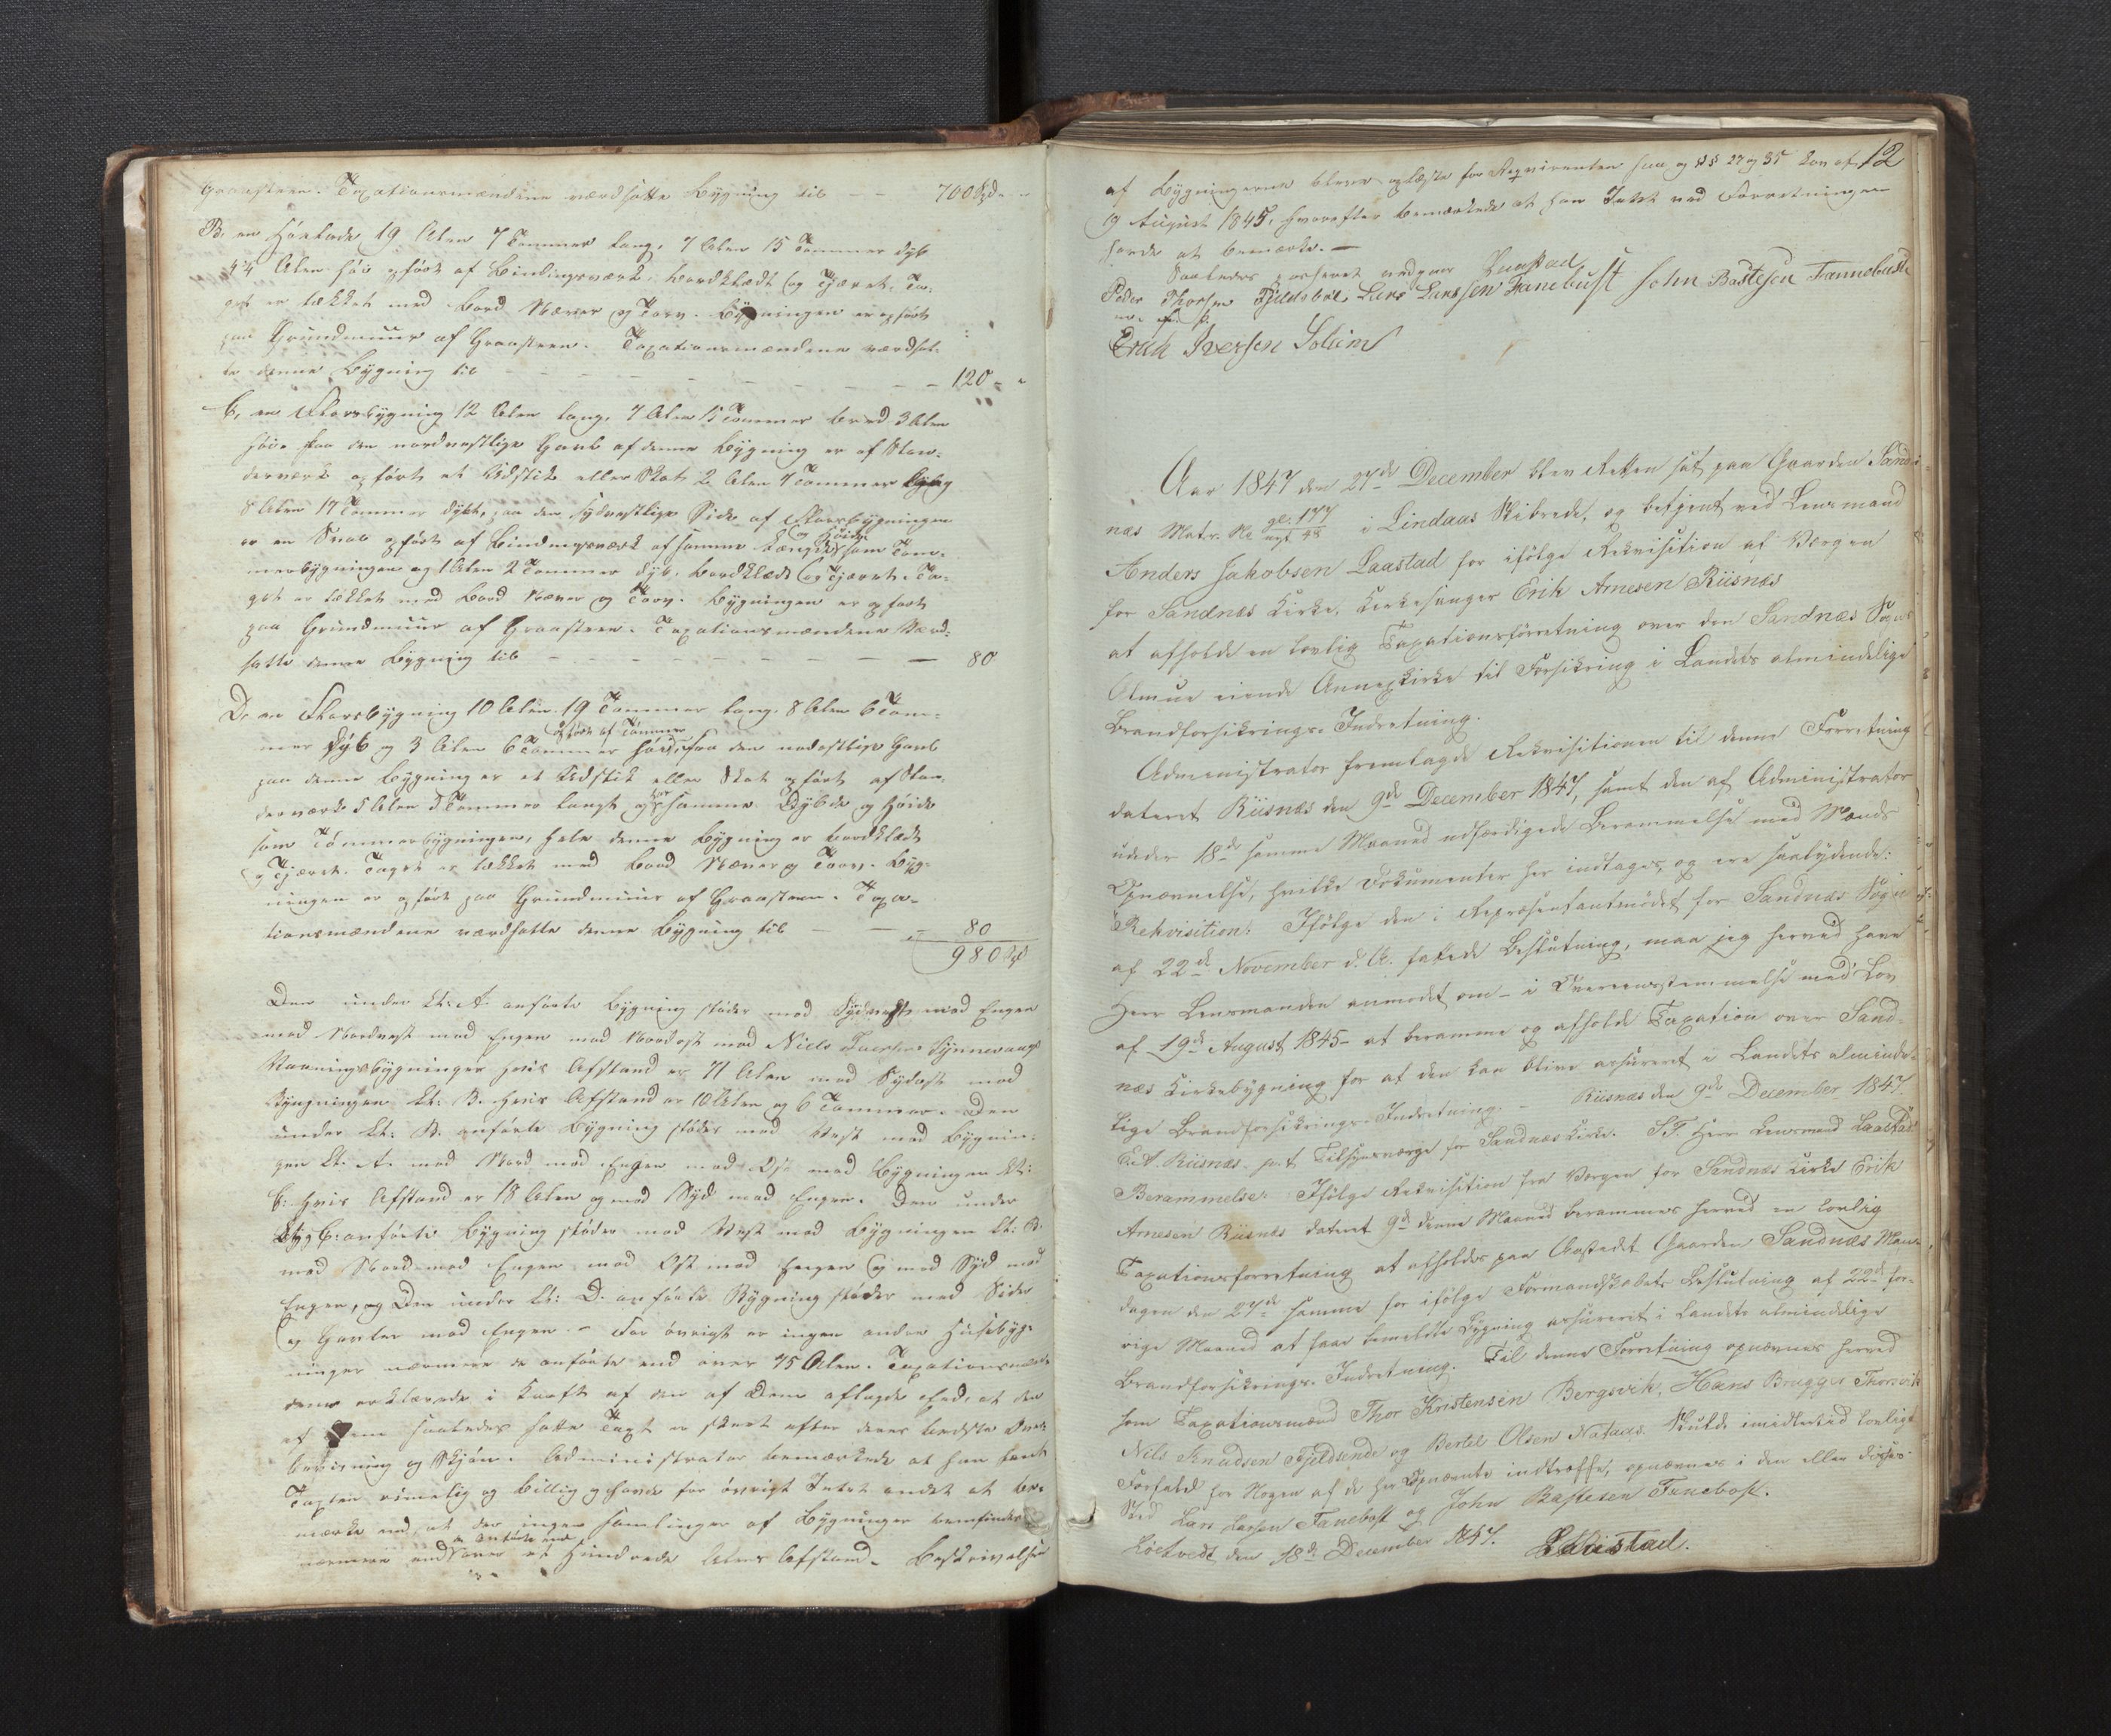 Graasteen. Taxationsmændene værdsatte Bygning til — — 700 Spd. "
B, en Høelade 19 Alen 7 Tommer lang, 7 Alen 15 Tommer dyb
4¼ Alen høi opført af Bindingsværk, bordklædt og tjæret. Ta-
get er tækket med Bord Næver og Torv. Bygningen er opført
paa Grundmuur af Graasteen. Taxationsmændene værdsat-
te denne Bygning til — — — — — — — — 120 " "
C, en Floorsbygning 12 Alen lang, 7 Alen 15 Tommer bred 3 Alen
høi. Paa den nordvestlige Gavl af denne Bygning er af Stan-
derværk opført et Udstik eller Skot 2 Alen 7 Tommer
8 Alen 17 Tommer dybt, paa den sydvestlige Side af Floorsbygningen
er en Sval opført af Bindingsværk af samme Længde og Høide som Tøm-
merbygningen og 1 Alen 2 Tommer dyb, bordklædt og tjæret. Ta-
get er tækket med Bord Næver og Torv. Bygningen er opført
paa Grundmuur af Graasteen. Taxationsmændene værd-
satte denne Bygning til — — — — — — — 80
D, en Floorsbygning 10 Alen 19 Tommer lang, 8 Alen 6 Tom-
opført af Tømmer
mer dyb og 3 Alen 6 Tommer høi, paa den nordostlige Gavl
paa denne Bygning er et Udstik eller Skot opført af Stan-
derværk 5 Alen 3 Tommer langt og har samme Dybde og Høide
som Tømmerbygningen, hele denne Bygning er bordklædt
og tjæret. Taget er tækket med Bord Næver og Torv. Byg-
ningen er opført paa Grundmuur af Graasteen. Taxa-
tionsmændene værdsatte denne Bygning til — — 80
980 Spd
Den under Lt: A. anførte Bygning støder mod Sydvest mod Engen
mod Nordvest mod Engen mod Nordost mod Niels
Vaaningsbygninger hvis Afstand er 71 Alen mod Sydost mod
Bygningen Lt: B. hvis Afstand er 10 Alen og 6 Tommer. Den
under Lt: B. anførte Bygning støder mod Vest mod Bygnin-
gen Lt. A. mod Nord mod Engen mod Ost mod Bygningen Lt:
C. hvis Afstand er 18 Alen og mod Syd mod Engen. Den under
C: anførte Bygning støder mod Vest mod Bygningen Lt: B.
mod Nord mod Engen mod Ost mod Engen og mod Syd mod
Engen, og Den under Lt: D. anførte Bygning støder med Sider
og Gavler mod Engen. — For øvrigt er ingen andre Huusebyg-
ninger nærmere de anførte end over 75 Alen. Taxationsmæn-
dene erklærede i Kraft af den af Dem aflagde Eed, at den
af Dem saaledes satte Taxt er skeet efter deres bedste Over-
beviisning og Skjøn. Administrator bemærkede at han fandt
Taxten rimelig og billig og havde for øvrigt Intet andet at be-
mærke end, at der ingen Samlinger af Bygninger befindes
nærmere end anførte end over et Hundrede Alens Afstand. Beskrivelsen
12
af Bygningerne bleve oplæste for Reqvirenten saa og §§ 27 og 35 Lov af
19 August 1845, hvorefter bemærkede at han Intet ved Forretningen
havde at bemærke. —
Saaledes passeret undgaar Laastad
Peder Thorsen Fjeldsbøe Lars Larssen Fanebust John Bastesen Fannebust
m. p. P.
Erich Iversen Solliim
Aar 1847 den 27de December blev Retten sat paa Gaarden Sand-
næs Matr. No gl. 177 nyt 48 i Lindaas Skibrede, og betjent ved Lensmand
Anders Jakobsen Laastad for ifølge Rekvisition af Værgen
for Sandnæs Kirke, Kirkesanger Erik Arnesen Riisnæs
at afholde en lovlig Taxationsforretning over den Sandnæs Sogns
Almue eiende Annexkirke til Forsikring i Landets almindelige
Brandforsikrings-Indretning.
Administrator fremlagde Rekvisitionen til denne Forretning
dateret Riisnæs den 9de December 1847, samt den af Administrator
under 18de samme Maaned udfærdigede Berammelse med Mænds
Opnævnelse, hvilke Dokumenter her indtages, og ere saalydende:
Rekvisition: Ifølge den i Repræsentantmødet for Sandnæs Sogn
af 22de November d. A. fattede Beslutning, maa jeg herved have
Herr Lensmanden anmodet om — i Overeensstemmelse med Lov
af 19de August 1845 — at beramme og afholde Taxation over Sand-
næs Kirkebygning for at den kan blive assureret i Landets alminde-
lige Brandforsikrings-Indretning. — Riisnæs den 9de December 1847.
E. A. Riisnæs. p. t. Tilsynsværge for Sandnæs Kirke. S. T. Herr Lensmand Laastad
Berammelse: Ifølge Rekvisition fra Værgen for Sandnæs Kirke Erik
Arnesen Riisnæs dateret 9de denne Maaned berammes herved en lovlig
Taxationsforretning at afholdes paa Aastedet Gaarden Sandnæs Man-
dagen den 27de samme for ifølge Formandskabets Beslutning af 22de for-
rige Maaned at faae bemeldte Bygning assureret i Landets almindelige
Brandforsikrings-Indretning. Til denne Forretning opnævnes herved
som Taxationsmænd Thor Kristensen Bergsvik, Hans Brugger Thorsvik
Nils Knudsen Fjeldsende og Bertel Olsen Nataas. Skulde imidlertid lovligt
Forfald for Nogen af de her Opnævnte indtræffe, opnævnes i den eller disses
Sted Lars Larsen Fanebost og John Bastesen Fanebost.
Løtvedt den 18de December 1847. Laastad.